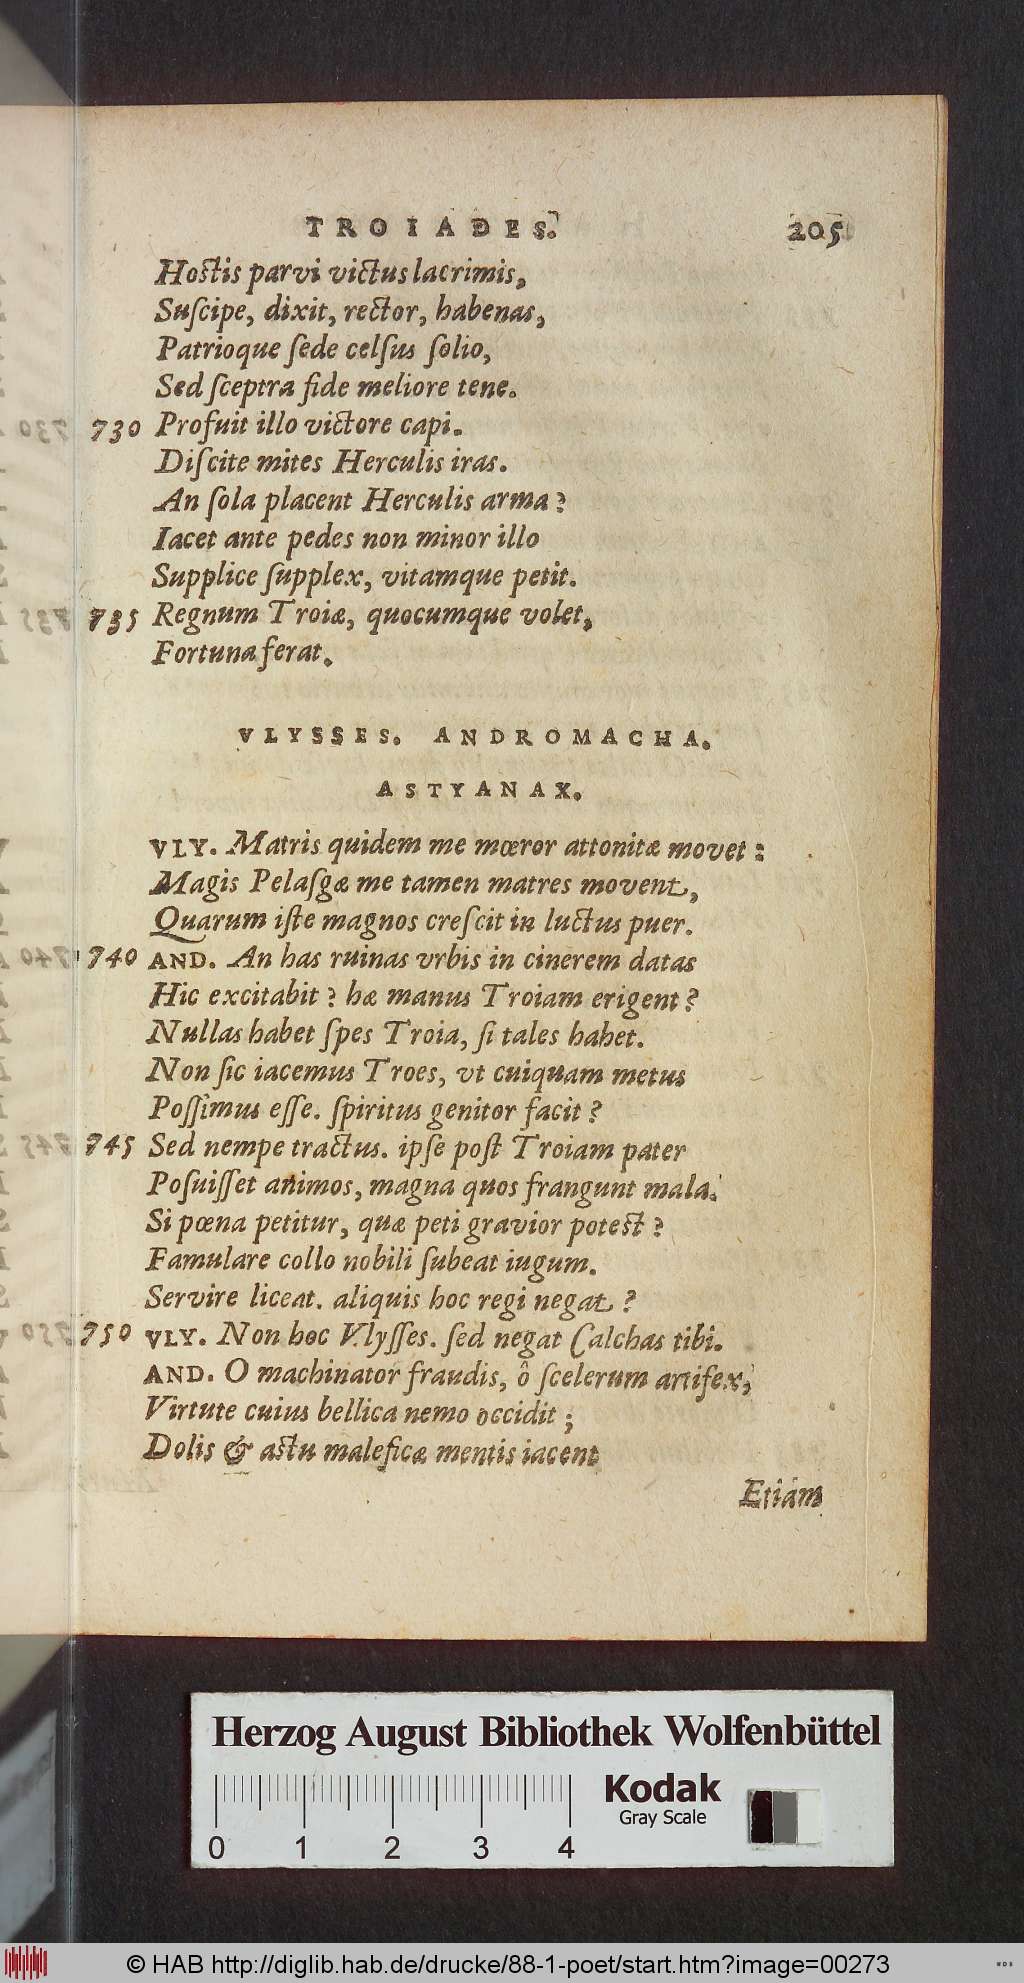 TROIADES. 205
Hostis parvi victus lacrimis,
Suſcipe, dixit, rector, habenas,
Patrioque ſede celſus ſolio,
Sed ſceptra fide meliore tene.
730 Profuit illo victore capi.
Diſcite mites Herculis iras.
An ſola placent Herculis arma?
Iacet ante pedes non minor illo
Supplice ſupplex, vitamque petit.
735 Regnum Troiæ, quocumque volet,
Fortuna ferat.
VLYSSES. ANDROMACHA.
ASTYANAX.
VLY. Matris quidem me mœror attonitæ movet:
Magis Pelaſgæ me tamen matres movent,
Quarum iſte magnos creſcit in luctus puer.
740 AND. An has ruinas vrbis in cinerem datas
Hic excitabit? hæ manus Troiam erigent?
Nullas habet ſpes Troia, ſi tales habet.
Non ſic iacemus Troes, vt cuiquam metus
Poſſimus eſſe. ſpiritus genitor facit?
745 Sed nempe tractus. ipſe poſt Troiam pater
Poſuiſſet animos, magna quos frangunt mala.
Si pœna petitur, quæ peti gravior potest?
Famulare collo nobili ſubeat iugum.
Servire liceat. aliquis hoc regi negat?
750 VLY. Non hoc Vlyſſes. ſed negat Calchas tibi.
AND. O machinator fraudis, ô ſcelerum artifex,
Virtute cuius bellica nemo occidit;
Dolis & astu maleficæ mentis iacent
Etiam
Herzog August Bibliothek Wolfenbüttel
Kodak
Gray Scale
0 1 2 3 4
© HAB http://diglib.hab.de/drucke/88-1-poet/start.htm?image=00273